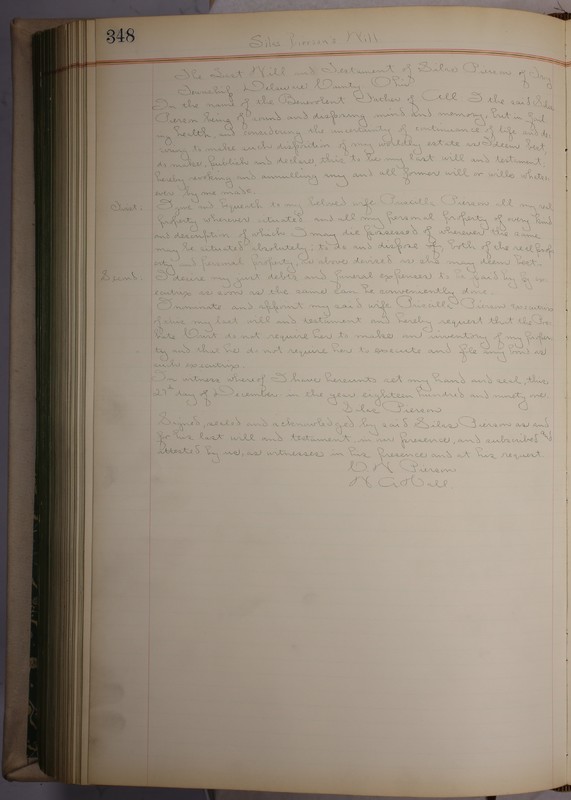 348
Silas Pierson's Will
The Last Will and Testament of Silas Pierson of
Township Delaware County Ohio
In the name of the Benevolent Father of All. I the said Silas
Pierson being of sound and disposing mind and memory, but in fail-
ing health, and considering the uncertainty of continuance of life and de-
siring to make such disposition of my worldly estate as I deem best
do make, publish and declare this to be my last will and testament
hereby revoking and annulling any and all former will or wills whatso-
ever by me made.
First. I give and bequeath to my beloved wife, Priscilla Pierson all my real
property wherever situated and all my personal property of every kind
and description of which I may die possessed of wherever the same
may be situated absolutely, to do and dispose of both of the real prop-
erty and personal property, as above devised as she may deem best.
Second. I desire my just debts and funeral expenses to be paid by my ex-
ecutrix as soon as the same can be conveniently done.
I nominate and appoint my said wife Priscilla Pierson executrix
of this my last will and testament and hereby request that the Pro-
bate Court do not require her to make an inventory of my proper-
ty and that he do not require her to execute and file any bond as
such executrix.
In witness whereof I have hereunto set my hand and seal, this
day of December in the year eighteen hundred and ninety
Silas Pierson
Signed, sealed and acknowledged by said Silas Pierson as and
for his last will and testament, in our presence, and subscribed &
attested by us, as witnesses in his presence and at his request.
Pierson